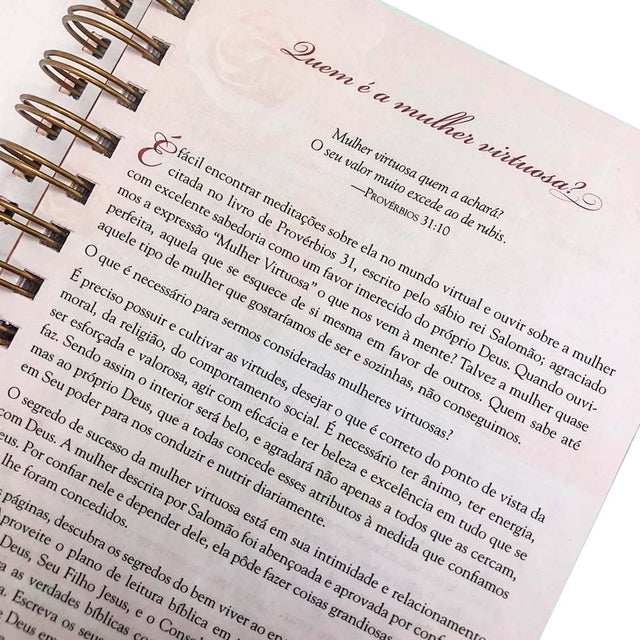 Quem é a mulher virtuosa?
Mulher virtuosa quem a achará?
O seu valor muito excede ao de rubis.
—Provérbios 31:10
É fácil encontrar meditações sobre ela no mundo virtual e ouvir sobre a mulher
citada no livro de Provérbios 31, escrito pelo sábio rei Salomão; agraciado
com excelente sabedoria como um favor imerecido do próprio Deus. Quando ouvi-
mos a expressão “Mulher Virtuosa” o que nos vem à mente? Talvez a mulher quase
perfeita, aquela que se esquece de si mesma em favor de outros. Quem sabe até
aquele tipo de mulher que gostaríamos de ser e sozinhas, não conseguimos.
O que é necessário para sermos consideradas mulheres virtuosas?
É preciso possuir e cultivar as virtudes, desejar o que é correto do ponto de vista da
moral, da religião, do comportamento social. É necessário ter ânimo, ter energia,
ser esforçada e valorosa, agir com eficácia e ter beleza e excelência em tudo que se
faz. Sendo assim o interior será belo, e agradará não apenas a todos que as cercam,
mas ao próprio Deus, que a todas concede esses atributos à medida que confiamos
em Seu poder para nos conduzir e nutrir diariamente.
O segredo de sucesso da mulher virtuosa está em sua intimidade e relacionamento
com Deus. A mulher descrita por Salomão foi abençoada e aprovada por
Deus. Por confiar nele e depender dele, ela pôde fazer coisas grandiosas
lhe foram concedidos.
páginas, descubra os segredos do bem viver ao
Aproveite o plano de leitura bíblica em
Deus, Seu Filho Jesus, e o
as verdades bíblicas
Escreva os seus
Deus em